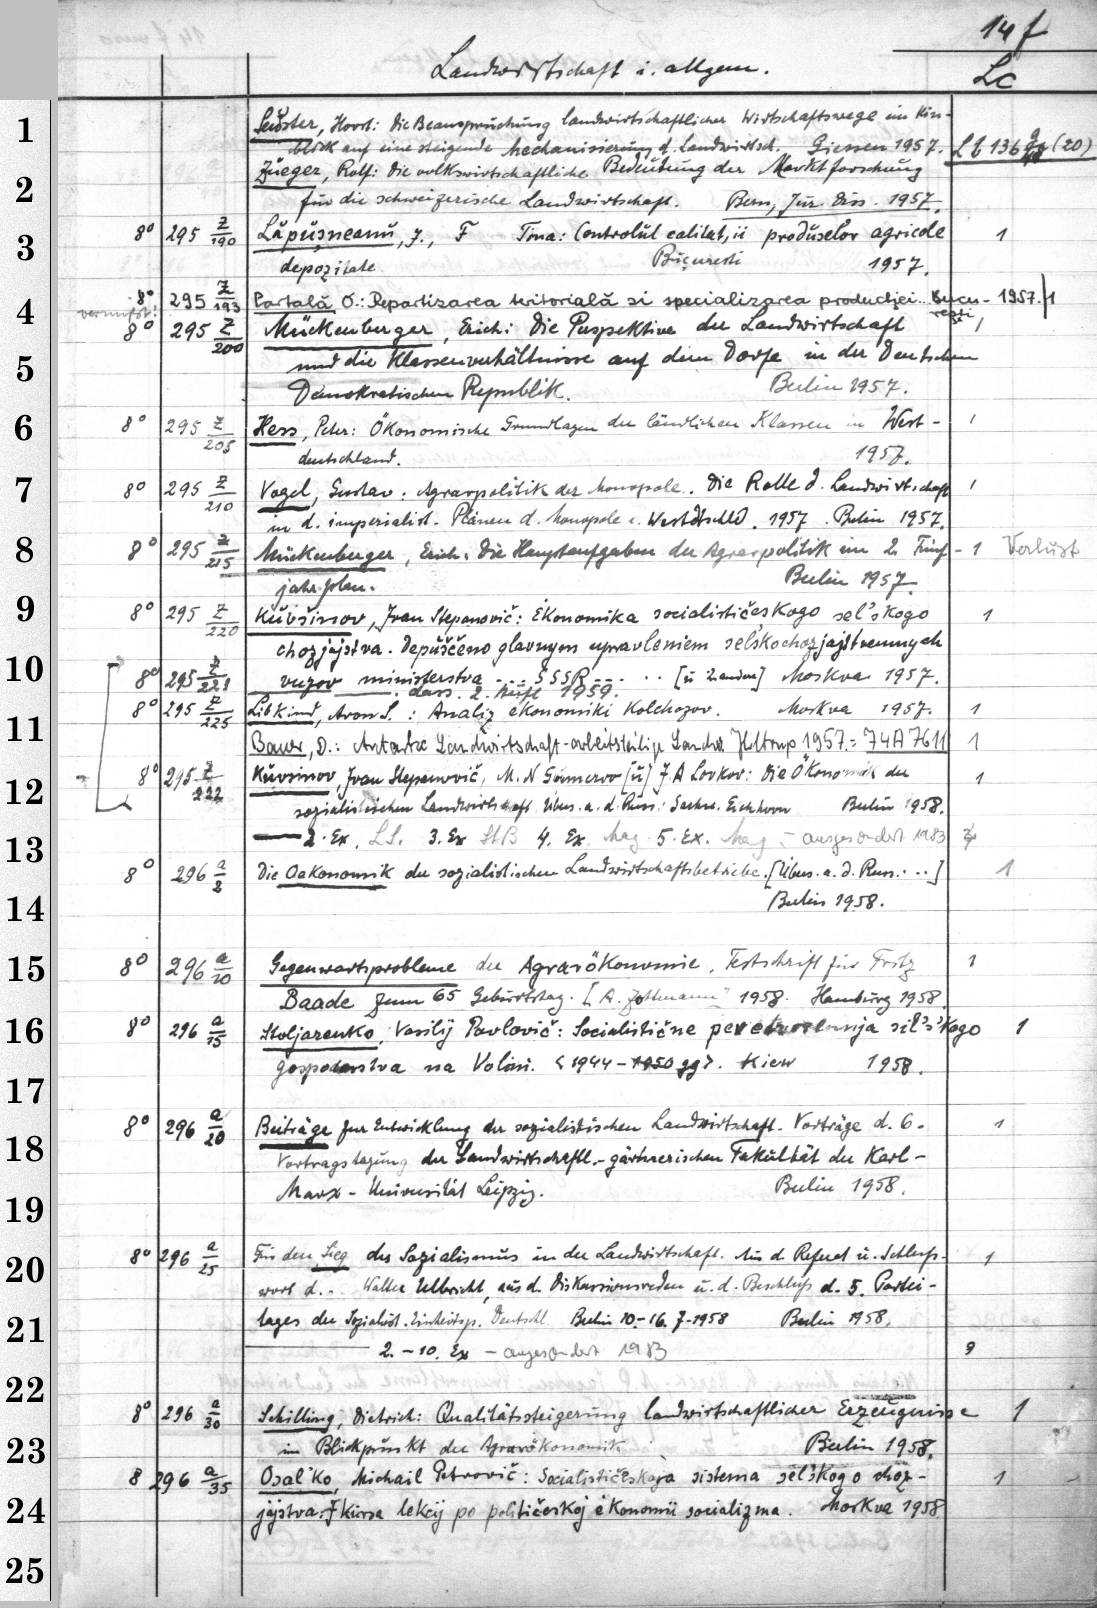 14 f
Landwirtschaft i. allgem.
Lc
1
Seuster, Horst: Die Beanspruchung landwirtschaftlicher Wirtschaftswege im Hin-
blick auf eine steigende Mechanisierung d. Landwirtsch. Giessen 1957. (20)
Züeger, Rolf: Die volkswirtschaftliche Bedeutung der Marktforschung
2
für die schweizerische Landwirtschaft. Bern, Jur. Diss. 1957.
3
8° 295 Z/190 Lăpuşneanu, J., F Tina: Controlul calitatii produselor agricole 1
depozitate Bucuresti 1957.
4
8° 295 Z/193 Partală O.: Repartizarea teritorială si specializarea productiei.. Bucu- 1957. 1
vermißt! resti
8° 295 Z/200 Mückenberger, Erich: Die Perspektive der Landwirtschaft 1
5
und die Klassenverhältnisse auf dem Dorfe in der Deutschen
Demokratischen Republik. Berlin 1957.
6
8° 295 Z/205 Hess, Peter: Ökonomische Grundlagen der ländlichen Klassen in West- 1
deutschland. 1957.
7
8° 295 Z/210 Vogel, Gustav: Agrarpolitik der Monopole. Die Rolle d. Landwirtschaft 1
in d. imperialist. Plänen d. Monopole i. Westdtschld. 1957. Berlin 1957.
8
8° 295 Z/215 Mückenberger, Erich: Die Hauptaufgaben der Agrarpolitik im 2. Fünf- 1 Verlust
jahrplan. Berlin 1957.
9
8° 295 Z/220 Kuvšinov, Ivan Stepanovič: Ėkonomika socialističeskogo sel'skogo 1
chozjajstva. Dopuščeno glavnym upravleniem sel'skochozjajstvennych
10
8° 295 Z/221 vuzov ministerstva ... SSSR ... [u. 2 andere] Moskva 1957.
dass. 2. Aufl. 1959.
8° 295 Z/225 Libkind, Aron S.: Analiz ėkonomiki kolchozov. Moskva 1957. 1
11
Bauer, O.: Landwirtschaft-arbeitsteilige Landw. Hiltrup 1957 = 74A7611 1
12
8° 295 Z/222 Kuvsinov, Ivan Stepanovič, M. N [u] J A Lovkov: Die Ökonomik der 1
sozialistischen Landwirtschaft. Übers. a. d. Russ.: Eichhorn Berlin 1958.
13
2. Ex. LS. 3. Ex StB 4. Ex. Mag 5. Ex. Mag - ausgesondert 1983 4
8° 296 a/2 Die Oekonomik der sozialistischen Landwirtschaftsbetriebe. [Übers. a. d. Russ. ..] 1
14
Berlin 1958.
15
8° 296 a/10 Gegenwartsprobleme der Agrarökonomie. Festschrift für Fritz 1
Baade zum 65 Geburtstag. 1958. Hamburg 1958.
16
8° 296 a/15 Stoljarenko, Vasilij Pavlovič: Socialistične peretvorennja sil's'kogo 1
gospodarstva na Volini. <1944-1950 gg>. Kiew 1958.
17
18
8° 296 a/20 Beiträge zur Entwicklung der sozialistischen Landwirtschaft. Vorträge d. 6. 1
Vortragstagung der Landwirtschaftl.-gärtnerischen Fakultät der Karl-
Marx-Universität Leipzig. Berlin 1958.
19
20
8° 296 a/25 Für den Sieg des Sozialismus in der Landwirtschaft. Aus d. Referat u. Schluß- 1
wort d... Walter Ulbricht, aus d. Diskussionsreden u. d. Beschluß d. 5. Partei-
21
tages der Sozialist. Einheitsp. Deutschl. Berlin 10.-16. 7. 1958 Berlin 1958.
2.-10. Ex - ausgesondert 1983 9
22
8° 296 a/30 Schilling, Dietrich: Qualitätssteigerung landwirtschaftlicher Erzeugnisse 1
23
im Blickpunkt der Agrarökonomik Berlin 1958.
8 296 a/35 Osal'ko, Michail Petrovič: Socialističeskaja sistema sel'skogo choz- 1
24
jajstva: Iz kursa lekcij po političeskoj ėkonomii socializma. Moskva 1958
25